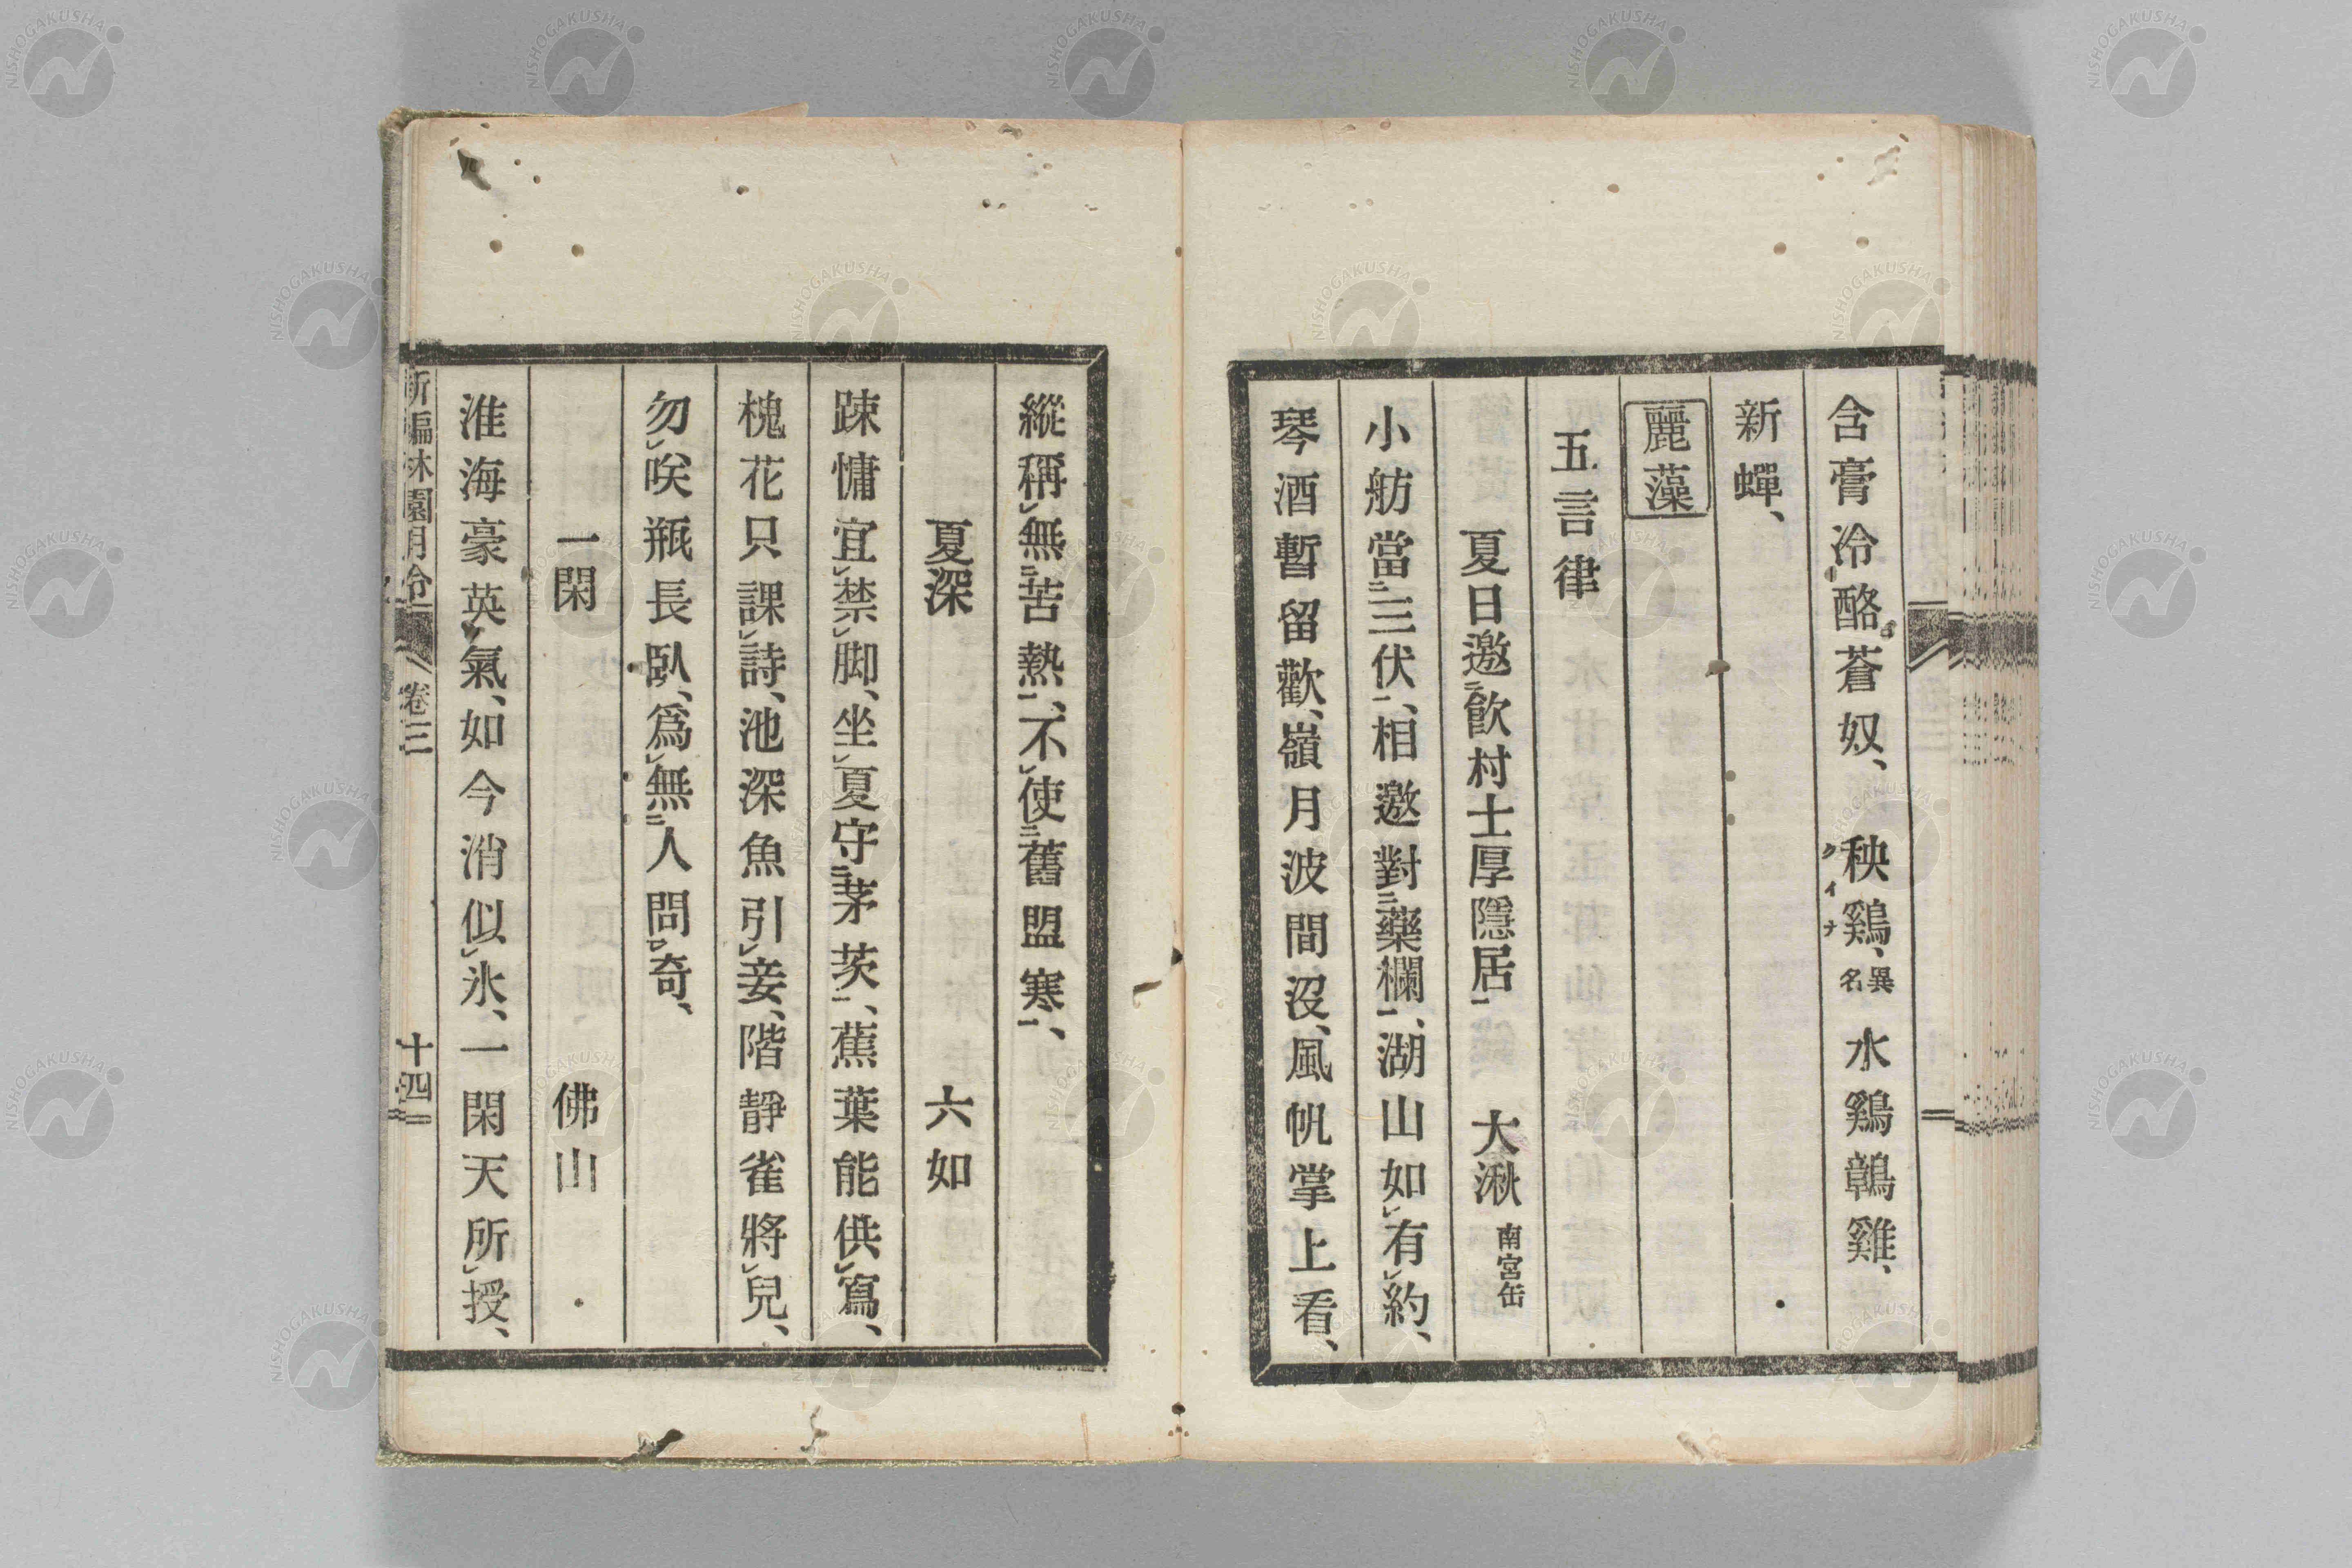 含膏冷酪蒼奴、 秧鷄、クイナ 異名 水鷄鶄雞、
新蟬、
麗藻
五言律
夏日邀㆓飮村士厚隱居㆒ 大湫 南宮岳
小舫當㆓三伏㆒、相邀對㆓藥欄㆒、湖山如㆑有㆑約、
琴酒暫留歡、嶺月波間沒、風帆掌上看、
縱稱㆑無㆓苦熱㆒、不㆑使㆓舊盟寒㆒、
夏深 六如
疎慵宜㆑禁㆑脚、坐㆑夏守㆓茅茨㆒、蕉葉能供㆑寫、
槐花只課㆑詩、池深魚引㆑妾、階靜雀將㆑兒、
勿㆑咲瓶長臥、爲㆑無㆓人問㆒㆑奇、
一閑 佛山
淮海豪英氣、如今消似㆑氷、一閑天所㆑授、
新編林園月令 卷三 十四
NISHOGAKUSHA